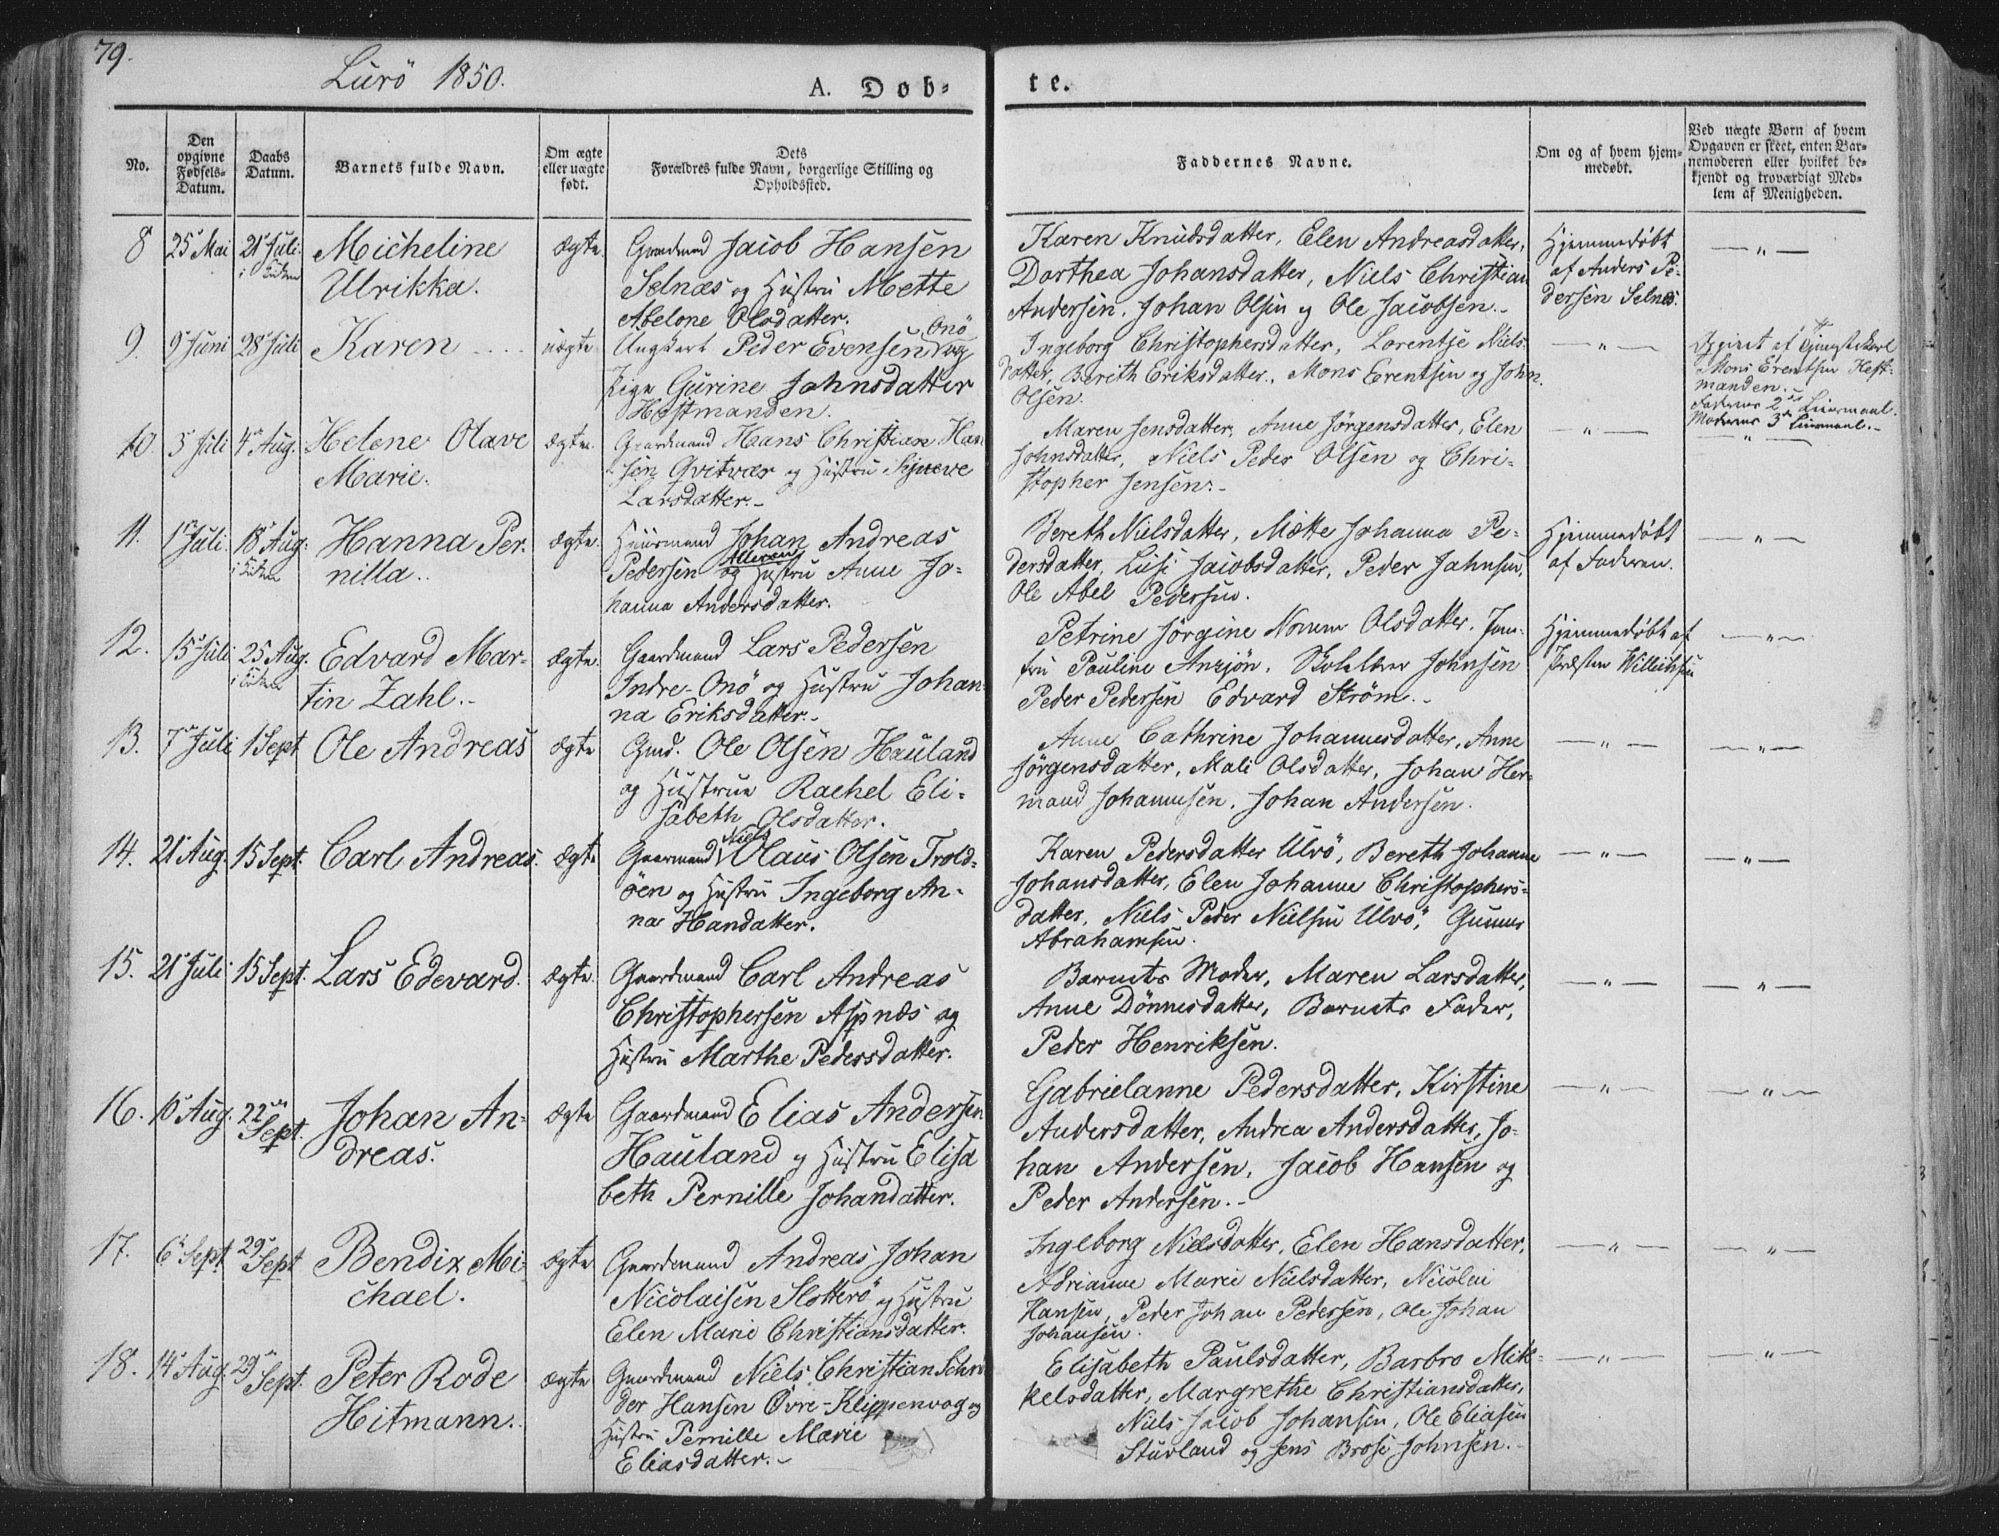 79.
Lurö 1850.
A. Døb-
te.
No.
Den opgivne Fødsels-Datum.
Daabs Datum.
Barnets fulde Navn.
Om ægte eller uægte født.
Dets Forældres fulde Navn, borgerlige Stilling og Opholdssted.
Faddernes Navne.
Om og af hvem hjemmedøbt.
Ved uægte Børn af hvem Opgaven er skeet, enten Barnemoderen eller hvilket bekjendt og troværdigt Medlem af Menigheden.
8 25 Mai 21 Juli Micheline ægte Gaardmand Jacob Hansen
i Kirken Ulrikka. Selnæs og Hustru Mette
Abelone Olsdatter.
Karen Knudsdatter, Elen Andreasdatter,
Dorthea Johansdatter, Niels Christian
Andersen, Johan Olsen og Ole Jacobsen.
Hjemmedøbt
af Anders Pe-
dersen Selnæs.
— " —
9. 9 Juni 28 Juli Karen uægte Ungkarl Peder Evensen Onö og
Pige Gurine Johnsdatter
Hestmanden.
Ingeborg Christophersdatter, Lorentse Niels
datter, Berith Eriksdatter, Mons Erentsen og John
Olsen.
— " —
Opgivet af Tjenestekarl
Mons Erentsen Hest-
manden.
Faderens 2det Leiermaal.
Moderens 3die Leiermaal.
10 3 Juli 4 Aug. Helene Olave ægte Gaardmand Hans Christian Han
Marie. sen Qvitvær og Hustru Sÿneve
Larsdatter.
Maren Jensdatter, Anne Jörgensdatter, Elen
Johnsdatter, Niels Peder Olsen og Chri-
stopher Jensen.
— " —
— " —
11. 1 Juli 18 Aug. Hanna Per- ægte. Huusmand Johan Andreas
i Kirken nilla. Pedersen og Hustru Anne Jo-
hanna Andersdatter.
Bereth Nielsdatter, Mætte Johanna Pe-
dersdatter, Lusi Jacobsdatter, Peder Jahnsen,
Ole Abel Pedersen.
Hjemmedøbt
af Faderen.
— " —
12. 15 Juli 25 Aug. Edvard Mar- ægte. Gaardmand Lars Pedersen
i Kirken tin Zahl. Indre-Onö og Hustru Johan-
na Eriksdatter.
Petrine Jörgine Olsdatter, Jom-
fru Pauline Johnsen
Peder Pedersen Edvard Ström.
Hjemmedøbt af
Præsten
— " —
13. 7 Juli 1 Sept Ole Andreas ægte Gmd. Ole Olsen Hauland
og Hustrue Rachel Eli-
sabeth Olsdatter.
Anne Cathrine Johannesdatter, Anne
Jörgensdatter, Mali Olsdatter, Johan Her-
mand Johannesen, Johan Andersen.
— " —
— " —
14. 21 Aug. 15 Sept. Carl Andreas. ægte Gaarmand Niels Olaus Olsen Trold-
öen og Hustru Ingeborg An-
na Handatter.
Karen Pedersdatter Ulvö, Bereth Johanne
Johansdatter, Elen Johanne Christophers-
datter, Niels Peder Nielsen Ulvö, Gunner
Abrahamsen.
— " —
— " —
15. 21 Juli 15 Sept. Lars Edevard. ægte. Gaardmand Carl Andreas
Christophersen Aspnæs og
Hustru Marthe Pedersdatter.
Barnets Moder, Maren Larsdatter,
Anne Dönnesdatter, Barnets Fader,
Peder Henriksen.
— " —
— " —
16. 10 Aug. 22 Sept. Johan An- ægte Gaardmand Elias Andersen
dreas. Hauland og Hustru Elisa
beth Pernille Johandatter.
Gabrielanne Pedersdatter, Kirstine
Andersdatter, Andrea Andersdatter, Jo-
han Andersen, Jacob Hansen og
Peder Andersen.
— " —
— " —
17. 6 Sept. 29 Sept Bendix Mi- ægte Gaardmand Andreas Johan
chael. Nicolaisen Slotterö og Hustru
Elen Marie Christiansdatter.
Ingeborg Nielsdatter, Elen Hansdatter,
Adrianne Marie Nielsdatter, Nicolai
Hansen, Peder Johan Pedersen, Ole Johan
Johansen.
— " —
— " —
18. 14 Aug. 29 Sept. Peter Rode ægte Gaardmand Niels Christian Schrö
Hitmann. der Hansen Övre-Klippenvog og
Hustru Pernille Marie
Eliasdatter.
Elisabeth Paulsdatter, Barbro Mik-
kelsdatter, Margrethe Christiansdatter,
Niels Jacob Johansen, Ole Eliasen
Sturland og Jens Brose Johnsen.
— " —
— " —